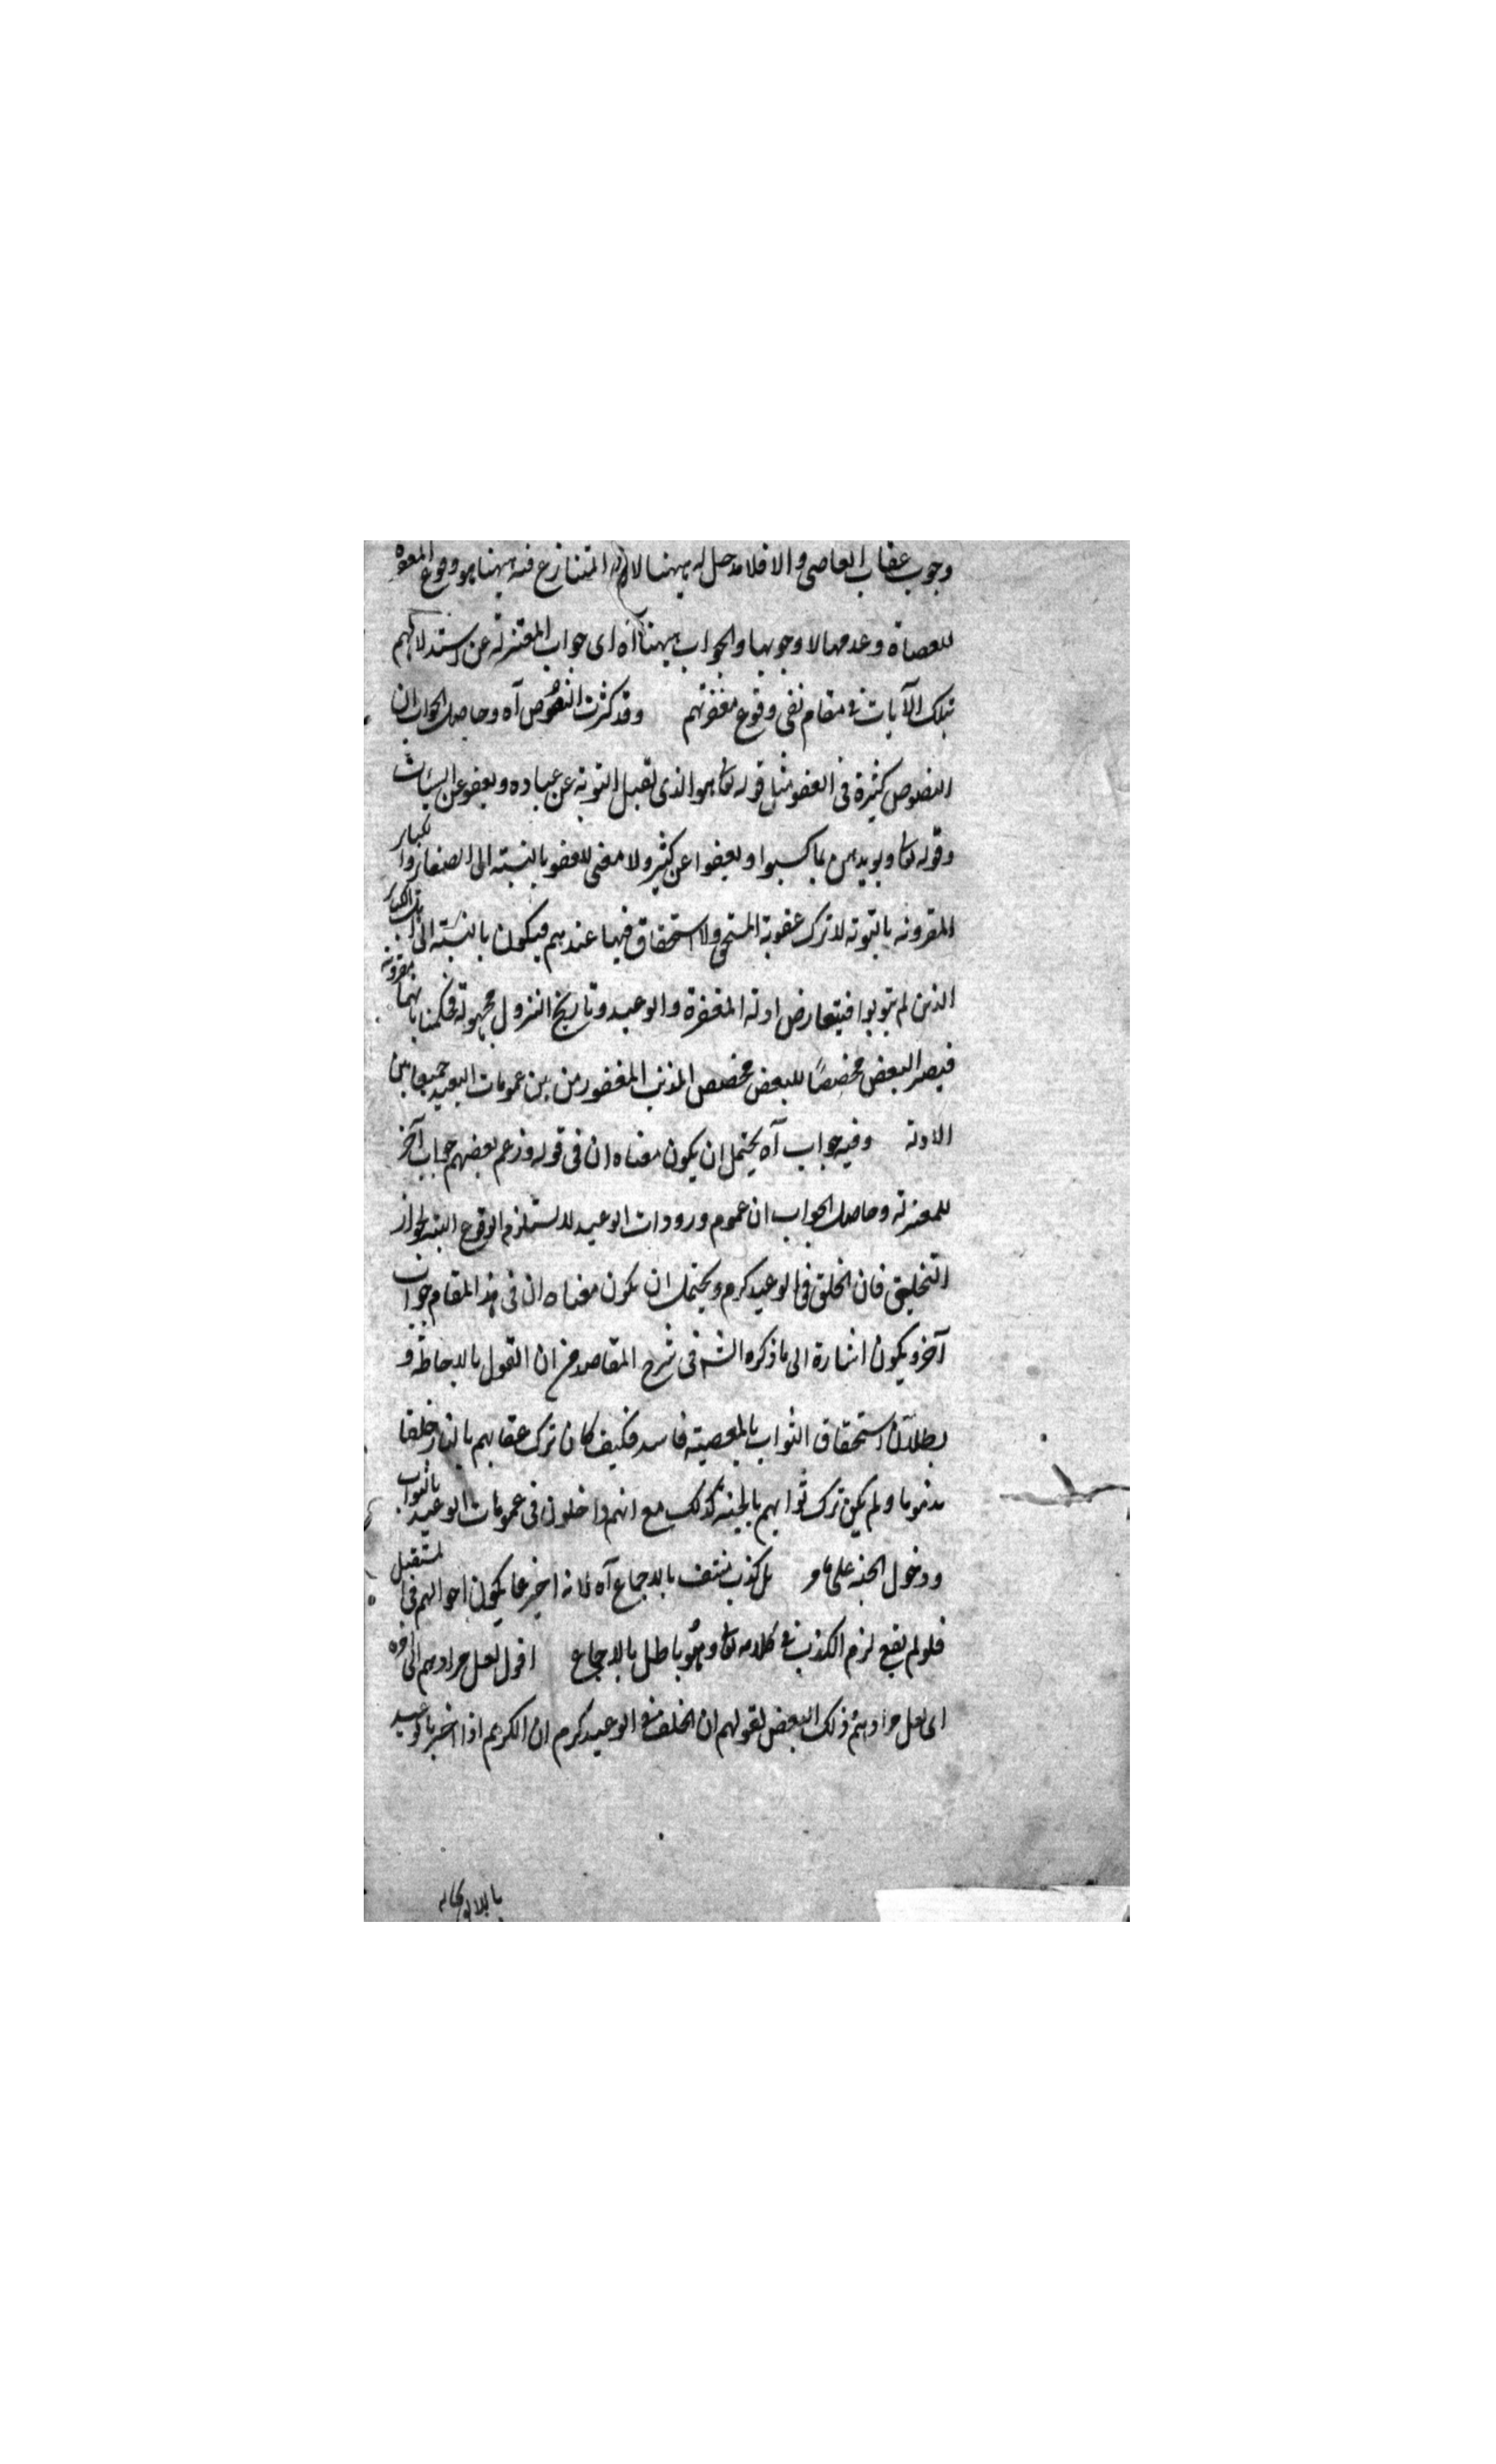 وجوب عقاب العاصى والا فلا مدخل له ههنا لان المتنازع فيه ههنا هو وقوع المغفرة
للعصاة وعدمها لا وجوبها والجواب ههنا آه اى جواب المعتزلة عن استدلالهم
بتلك الآيات فى مقام نفى وقوع مغفرتهم وقد كثرت النصوص آه وحاصل الجواب ان
النصوص كثيرة فى العفو مثل قوله تعا هو الذى يقبل التوبة عن عباده ويعفو عن السيئات
وقوله تعا او يوبقهن بما كسبوا ويعفوا عن كثير ولا معنى للعفو بالنسبة الى الصغائر والكبائر
المقرونة بالتوبة لانه ترك عقوبة المستحق ولا استحقاق فيها عندهم فيكون بالنسبة الى الكبائر
الذين لم يتوبوا فيتعارض ادلة المغفرة والوعيد وتاريخ النزول مجهولة فحكمنا بهما مقرونة
فيصير البعض مخصصًا للبعض مخصص المذنب المغفور من بين عمومات الوعيد جمعا بين
الادلة وفيه جواب آه يحتمل ان يكون معناه ان فى قوله وزعم بعضهم جواب آخر
للمعتزلة وحاصل الجواب ان عموم ورودات الوعيد لا يستلزم الوقوع البتة لجواز
التخليف فان الخلف فى الوعيد كرم ويحتمل ان يكون معناه ان فى هذا المقام جواب
آخر ويكون اشارة الى ما ذكره الش فى شرح المقاصد من ان القول بالاحاطة و
بطلان استحقاق الثواب بالمعصية فاسد فكيف كان ترك عقابهم بالنار خلفا
مذموما ولم يكن ترك ثوابهم بالجنة كذلك مع انهم داخلون فى عمومات الوعيد بالثواب
ودخول الجنة على ما مر بل كذب منتف بالاجماع آه لانه اخبر عما يكون احوالهم فى المستقبل
فلو لم يقع لزم الكذب فى كلامه تعا وهو باطل بالاجماع اقول لعل مرادهم الى آخره
اى لعل مرادهم ذلك البعض لقولهم ان الخلف فى الوعيد كرم ان الكريم اذا اخبر بالوعيد